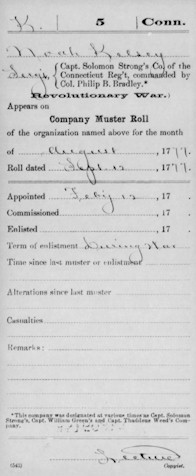 K. 5 Conn.
Noah Kelsey
Sergt, Capt. Solomon Strong's Co. of the
Connecticut Reg't, commanded by
Col. Philip B. Bradley.*
Revolutionary War.)
Appears on
Company Muster Roll
of the organization named above for the month
of August, 1777.
Roll dated Sept. 12, 1777.
Appointed Feby 12, 17 .
Commissioned , 17 .
Enlisted , 17 .
Term of enlistment During War
Time since last muster or enlistment
Alterations since last muster
Casualties
Remarks:
*This company was designated at various times as Capt. Solomon
Strong's, Capt. William Green's and Capt. Thaddeus Weed's Com-
pany.
(543) Copyist.